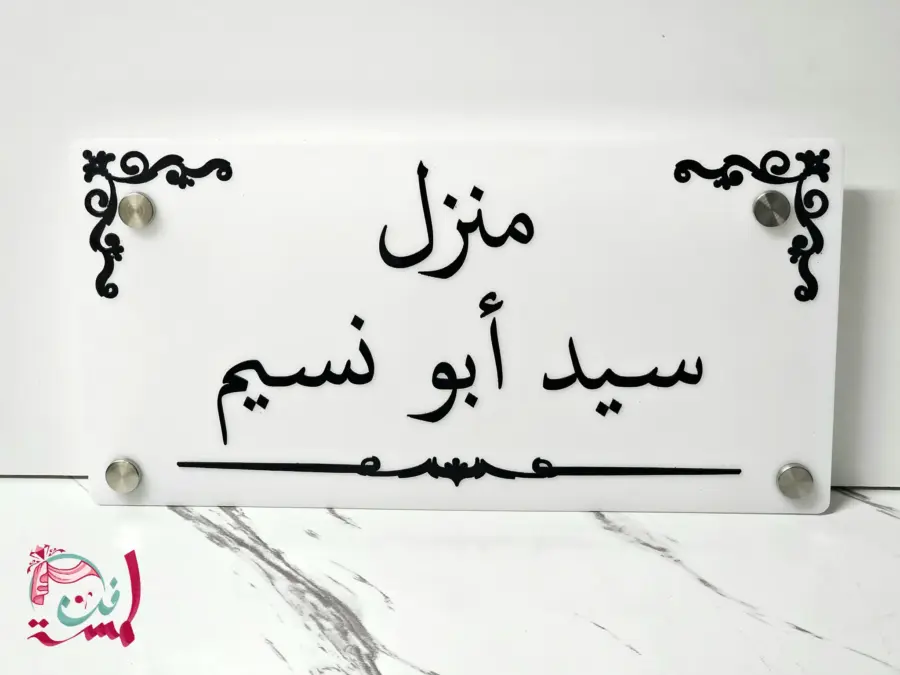 منزل
سيد أبو نسيم
لمسة فن